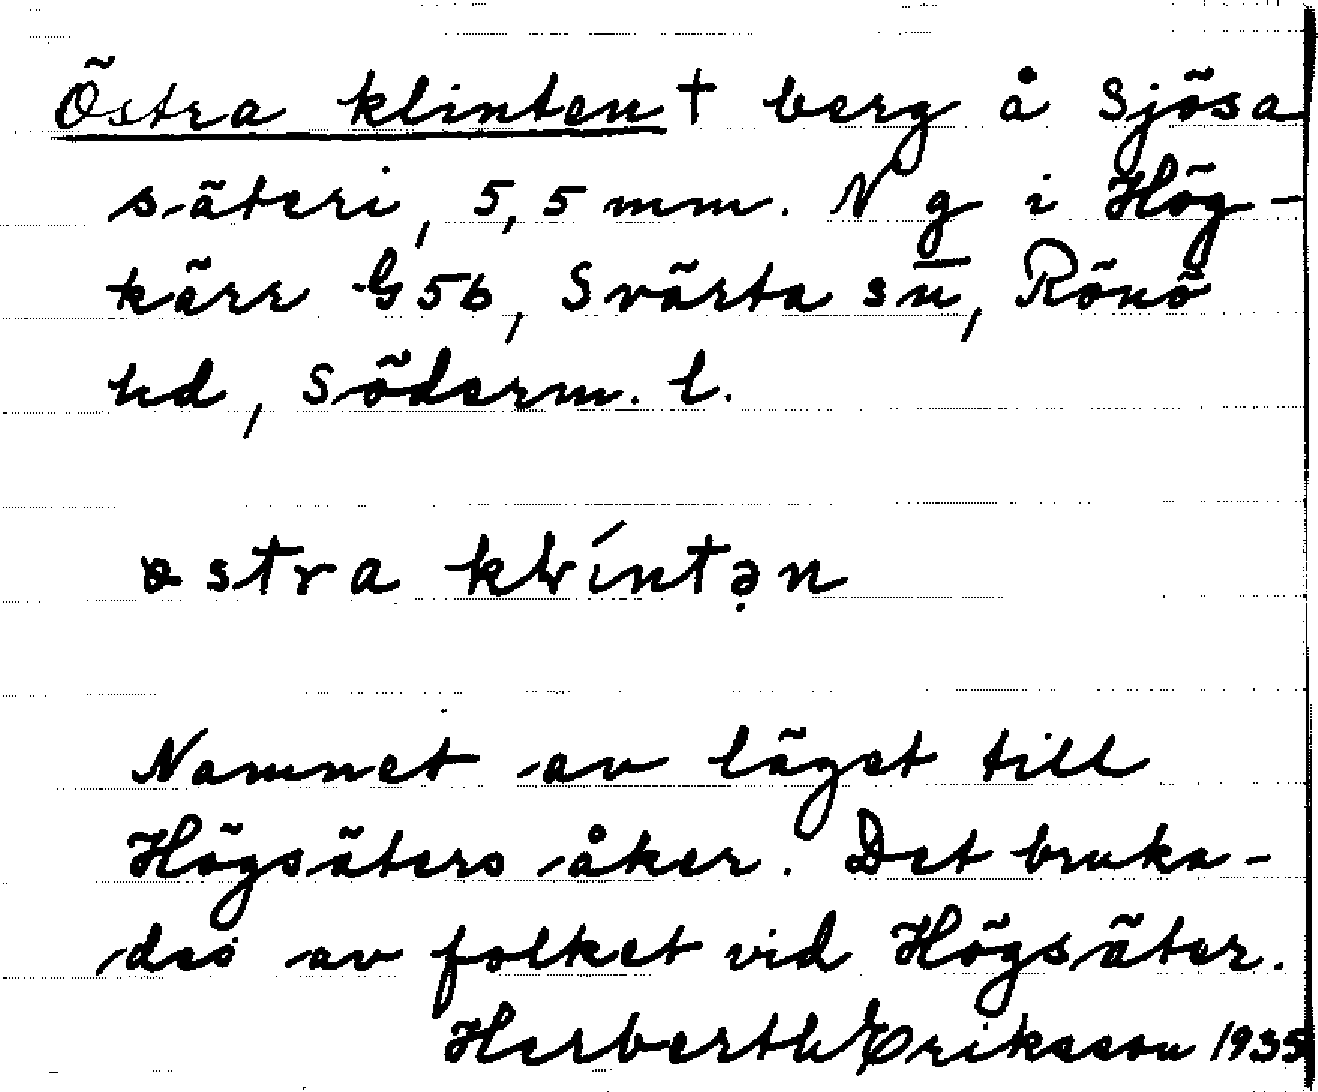 Östra klinten † berg å Sjösa
säteri, 5,5 mm. N g i Hög-
kärr G 56, Svärta sn, Rönö
hd, Söderm. l.
östra klintən
Namnet av läget till
Högsäters åker. Det bruka-
des av folket vid Högsäter.
Herberth Eriksson 1935